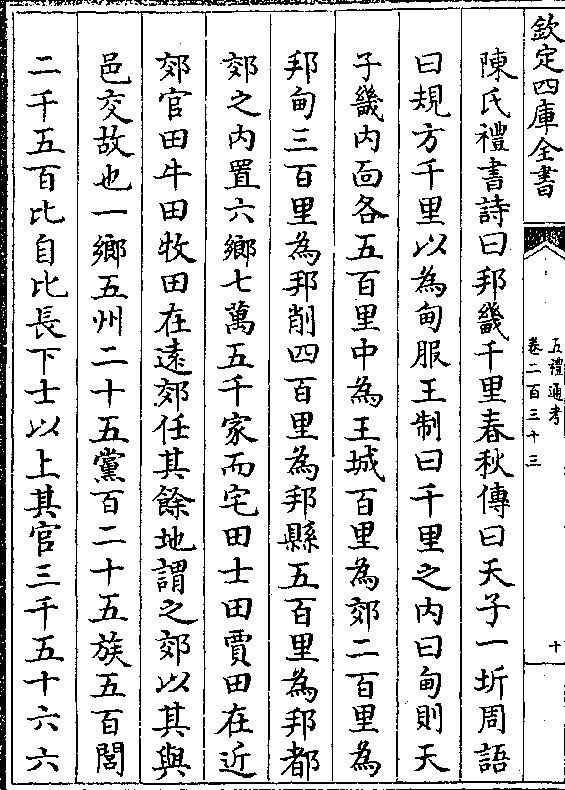 欽定四庫全書
五禮通考
卷二百三十三
十
陳氏禮書詩曰邦畿千里春秋傳曰天子一圻周語
曰規方千里以為甸服王制曰千里之內曰甸則天
子畿內面各五百里中為王城百里為郊二百里為
邦甸三百里為邦削四百里為邦縣五百里為邦都
郊之內置六鄉七萬五千家而宅田士田賈田在近
郊官田牛田牧田在遠郊任其餘地謂之郊以其與
邑交故也一鄉五州二十五黨百二十五族五百閭
二千五百比自比長下士以上其官三千五十六六